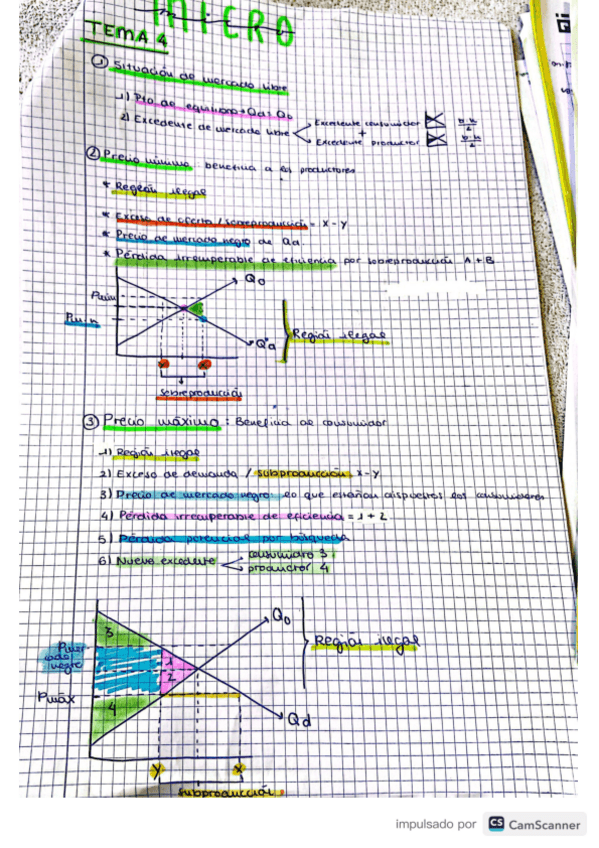 MICRO
TEMA 4
① Situación de mercado libre
1) Pto de equilibrio → Qd = Qo
2) Excedente de mercado libre
Excedente consumidor b·h/2
+
Excedente productor b·h/2
② Precio mínimo: beneficia a los productores
* Región ilegal
* Exceso de oferta / sobreproducción = X - Y
* Precio de mercado negro de Qd
* Pérdida irrecuperable de eficiencia por sobreproducción A + B
Qo
Pmin
Pm.n
Qd
Región ilegal
Y X
sobreproducción
③ Precio máximo: Beneficia al consumidor
1) Región ilegal
2) Exceso de demanda / subproducción x-y
3) Precio de mercado negro lo que estarían dispuestos los consumidores
4) Pérdida irrecuperable de eficiencia = 1 + 2
5) Pérdida potencial por búsqueda
6) Nuevo excedente
consumidor 3
productor 4
Qo
3
Pmer
cado
negro
1
2
Región ilegal
Pmáx
4
Qd
Y X
subproducción
impulsado por CS CamScanner